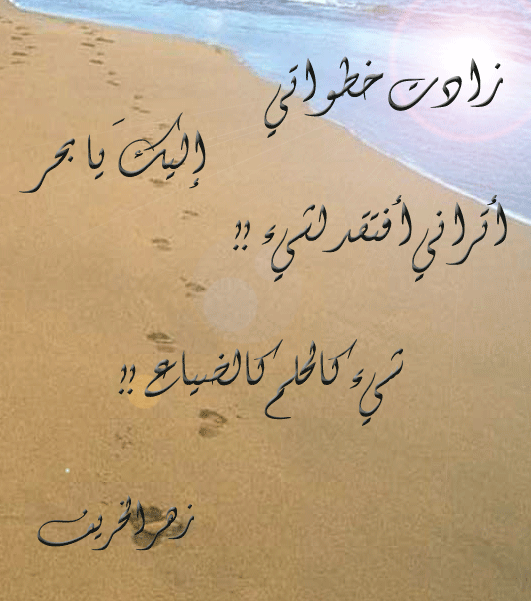 زادت خطواتي
إليكَ يا بحر
أتراني أفتقد لشيء !!
شيء كالحلم كالضياع !!
زهر الخريف